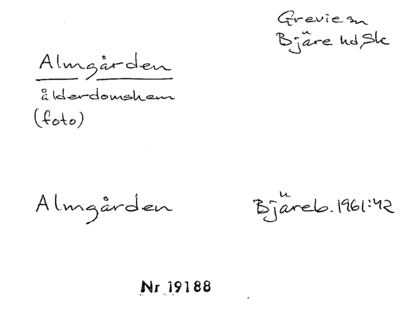 Grevie sn
Bjäre hd, Sk
Almgården
ålderdomshem
(foto)
Almgården Bjäreb. 1961:42
Nr 19188